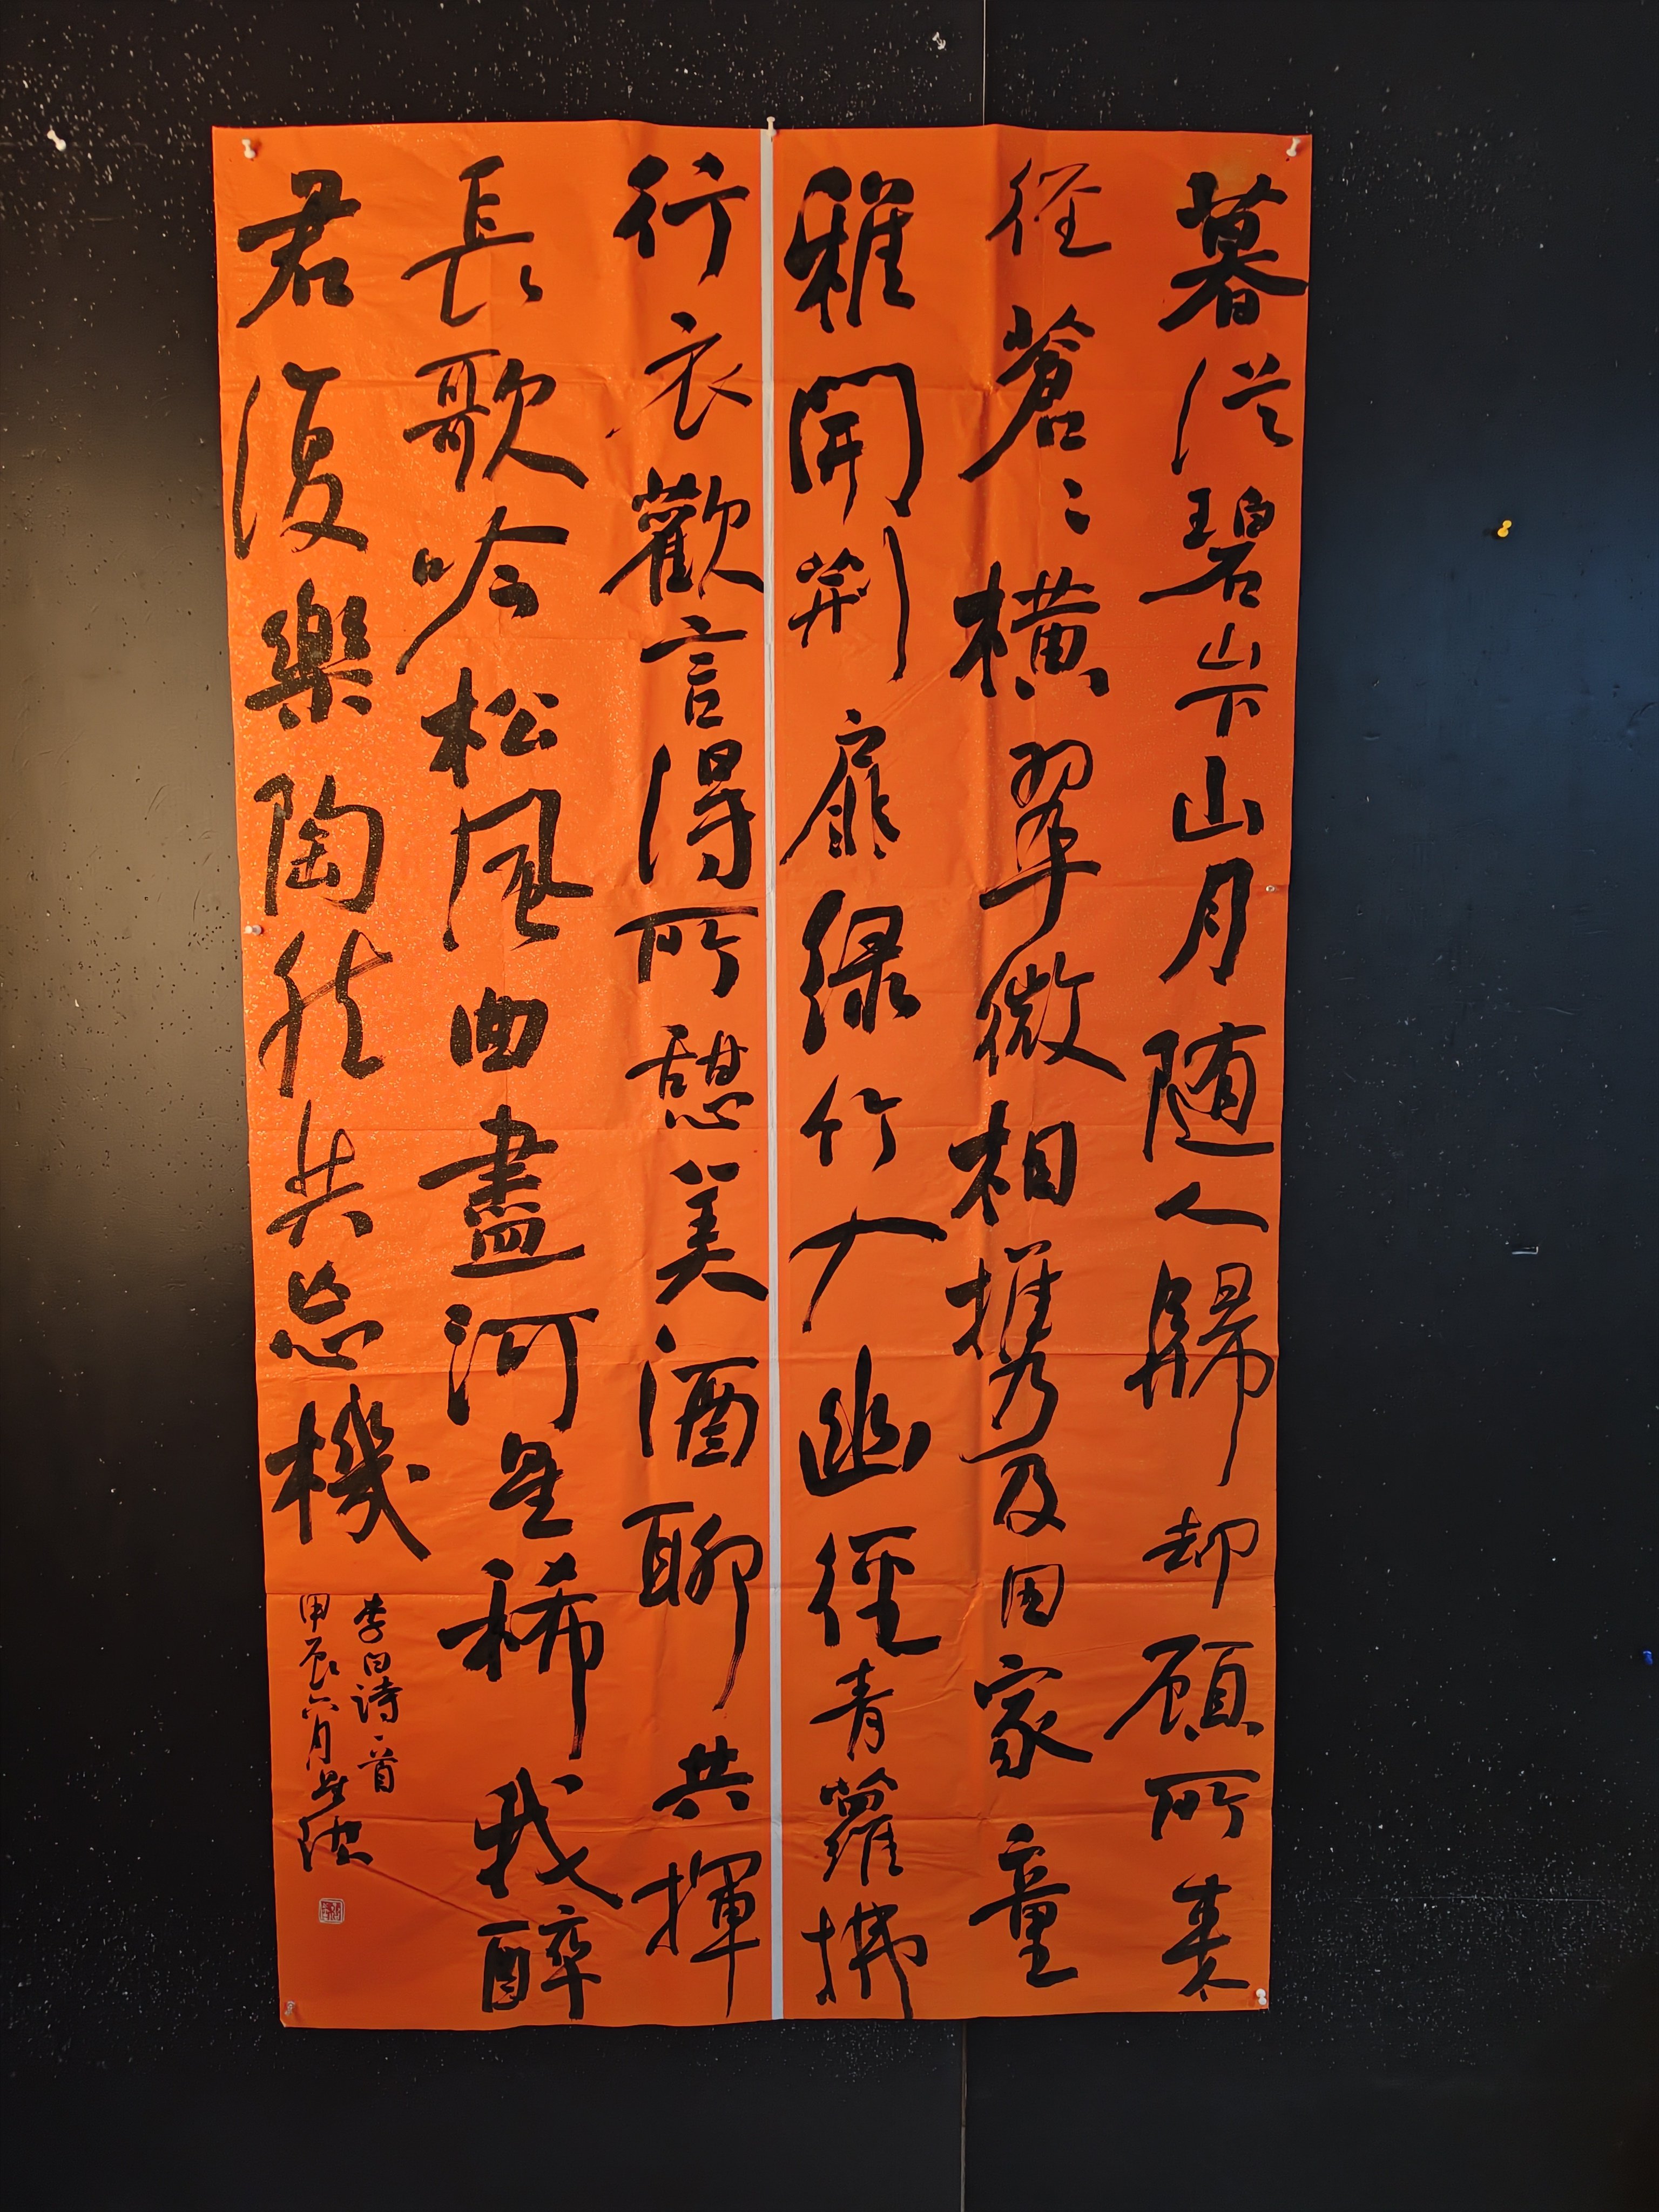 暮從碧山下山月随人歸却顧所来
徑蒼〻横翠微相携及田家童
稚開荆扉绿竹入幽徑青蘿拂
行衣歡言得所憩美酒聊共揮
長歌吟松風曲盡河星稀我醉
君復樂陶然共忘機
李白詩一首
甲辰六月